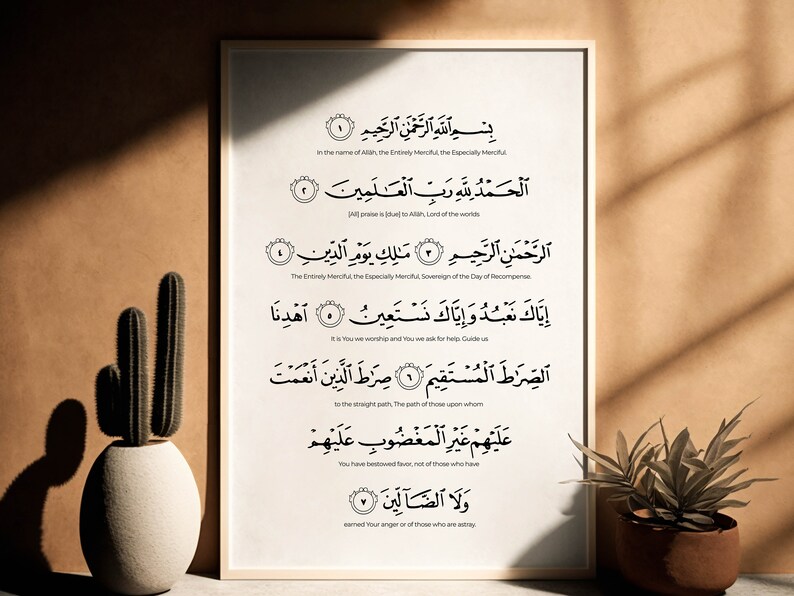 بِسْمِ ٱللَّهِ ٱلرَّحْمَٰنِ ٱلرَّحِيمِ ١
In the name of Allāh, the Entirely Merciful, the Especially Merciful.
ٱلْحَمْدُ لِلَّهِ رَبِّ ٱلْعَٰلَمِينَ ٢
[All] praise is [due] to Allāh, Lord of the worlds
ٱلرَّحْمَٰنِ ٱلرَّحِيمِ ٣ مَٰلِكِ يَوْمِ ٱلدِّينِ ٤
The Entirely Merciful, the Especially Merciful, Sovereign of the Day of Recompense.
إِيَّاكَ نَعْبُدُ وَإِيَّاكَ نَسْتَعِينُ ٥ ٱهْدِنَا
It is You we worship and You we ask for help. Guide us
ٱلصِّرَٰطَ ٱلْمُسْتَقِيمَ ٦ صِرَٰطَ ٱلَّذِينَ أَنْعَمْتَ
to the straight path, The path of those upon whom
عَلَيْهِمْ غَيْرِ ٱلْمَغْضُوبِ عَلَيْهِمْ
You have bestowed favor, not of those who have
وَلَا ٱلضَّآلِّينَ ٧
earned Your anger or of those who are astray.